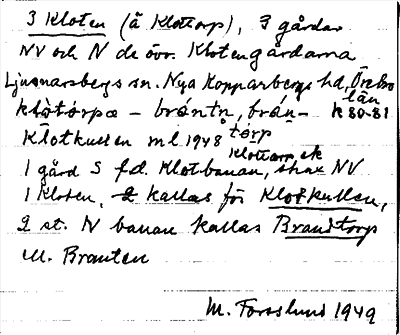 3 Kloten (å Klottorp), 3 gårdar
NV och N de övr. Klotengårdarna
Ljusnarsbergs sn. Nya Kopparbergs hd, Örebro län
klòtórpa - bróntn, brón- K 80-81
tórp
Klotkullen m l 1948
Klottorp, ek
1 gård S f.d. Klotbanan, strax NV
1 Kloten, 2 kallas för Klotkullen,
2 st. N banan kallas Brandtorp
el. Branten
M. Forsslund 1949